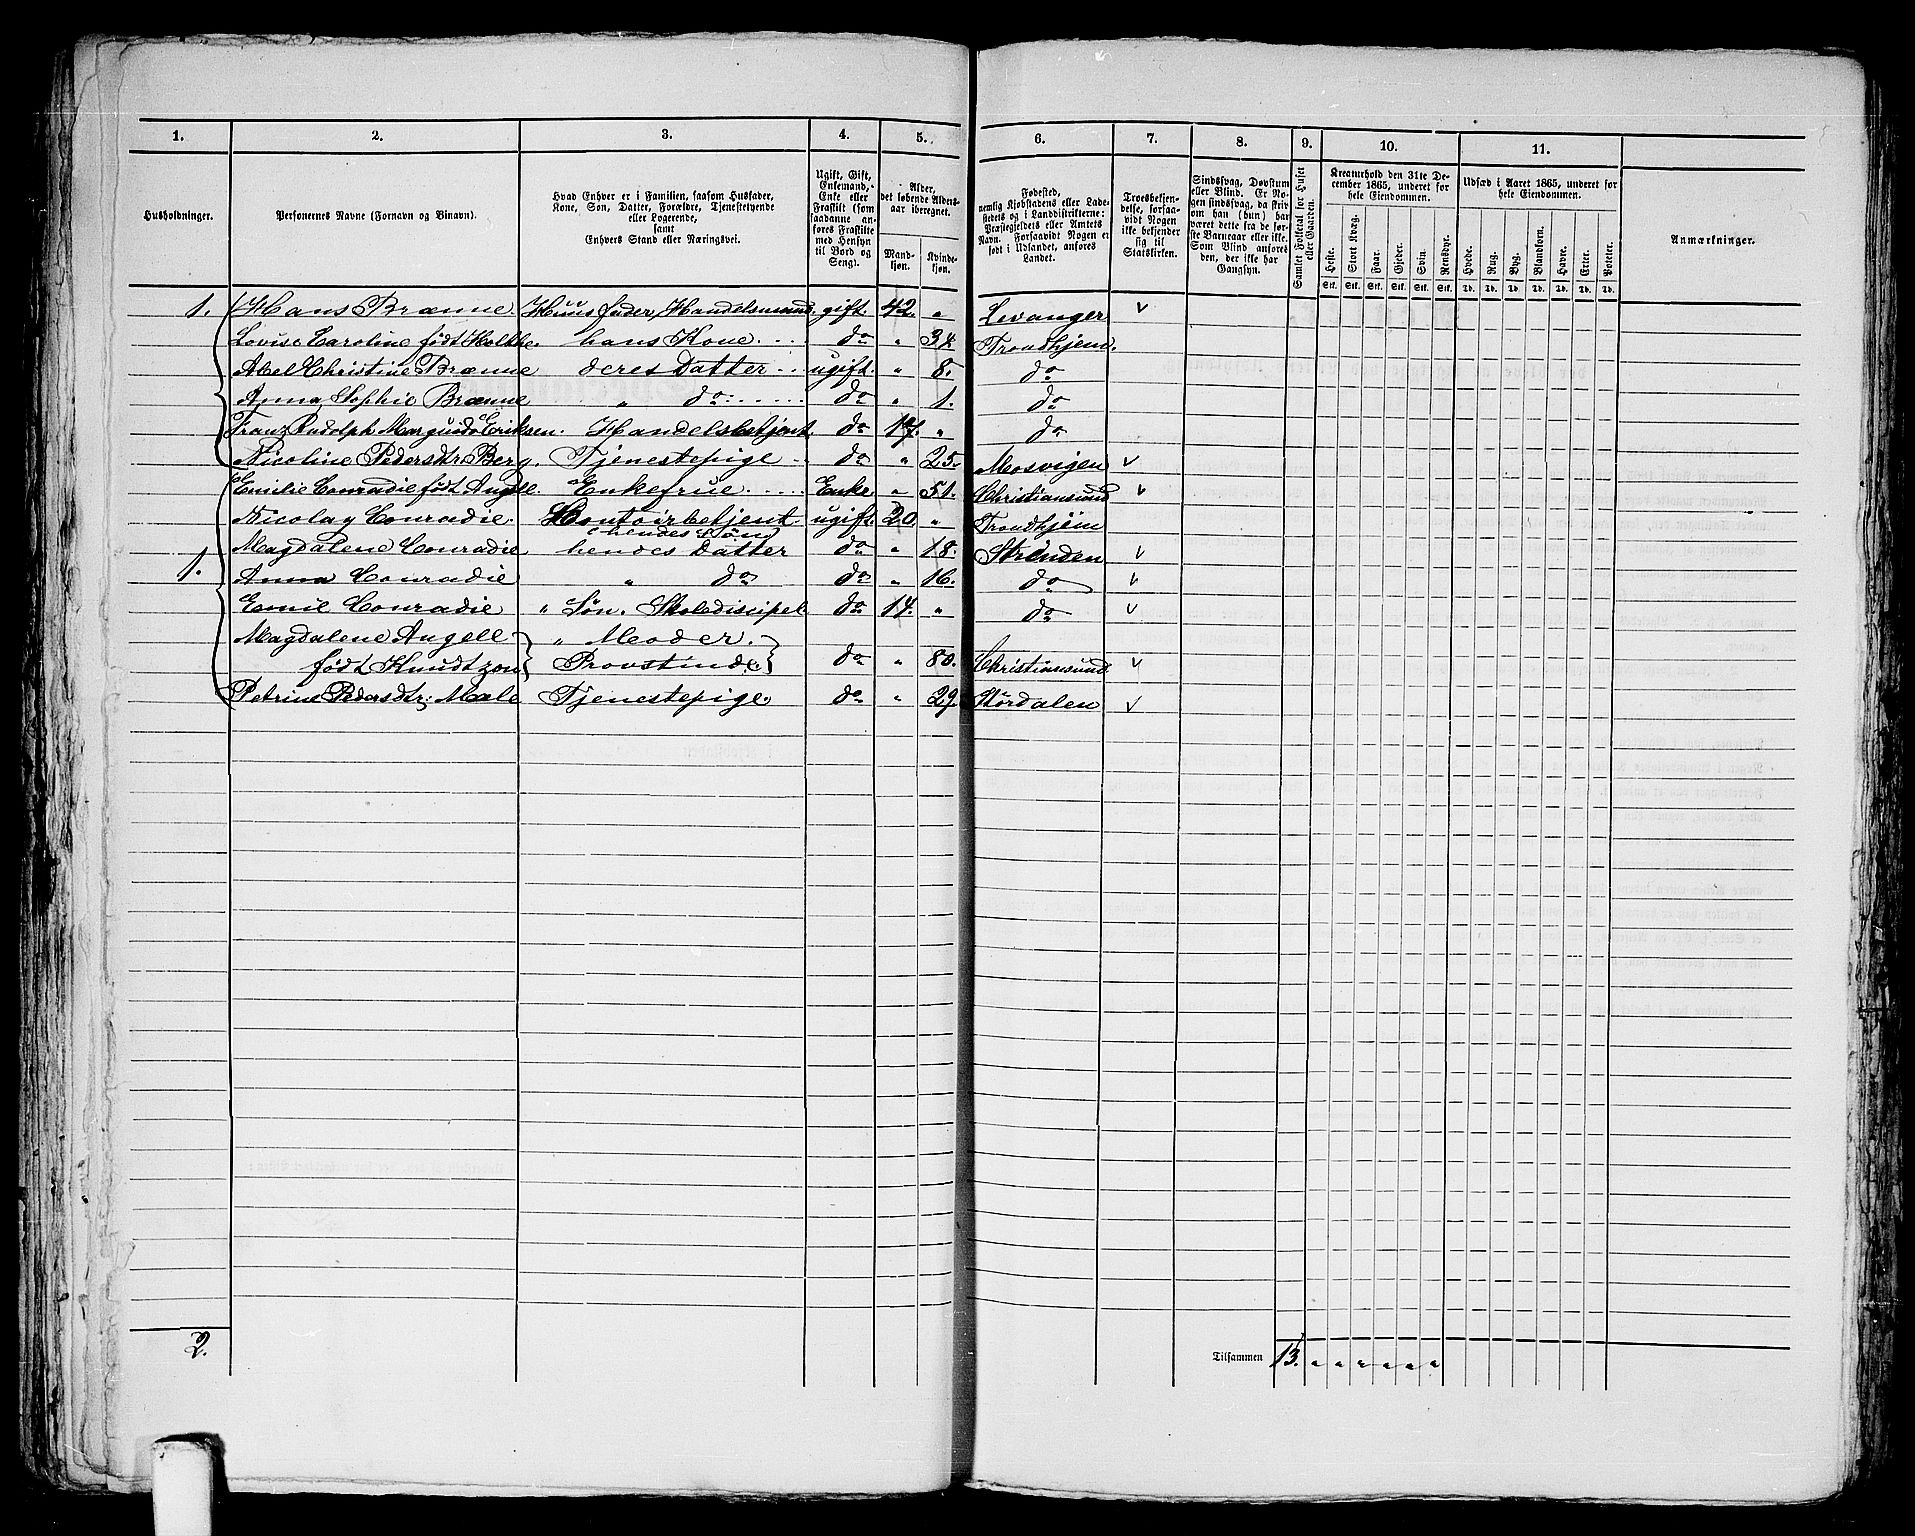 1. 2. 3. 4. 5. 6. 7. 8. 9. 10. 11.
Husholdninger.
Personernes Navne (Fornavn og Binavn).
Hvad Enhver er i Familien, saasom Husfader,
Kone, Søn, Datter, Forældre, Tjenestetyende
eller Logerende,
samt
Enhvers Stand eller Næringsvei.
Ugift, Gift,
Enkemand,
Enke eller
Fraskilt (som
saadanne an-
føres Fraskilte
med Hensyn
til Bord og
Seng).
Alder,
det løbende Alders-
aar iberegnet.
Mand-
kjøn.
Kvinde-
kjøn.
Fødested,
nemlig Kjøbstadens eller Lade-
stedets og i Landdistrikterne:
Præstegjeldets eller Amtets
Navn. Forsaavidt Nogen er
født i Udlandet, anføres
Landet.
Troesbekjen-
delse, forsaa-
vidt Nogen
ikke bekjender
sig til
Statskirken.
Sindssvag, Døvstum
eller Blind. Er No-
gen sindssvag, da skriv
om han (hun) har
været dette fra de før-
ste Barneaar eller ikke.
Som Blind anføres
den, der ikke har
Gangsyn.
Samlet Folketal for Huset
eller Gaarden.
Kreaturhold den 31te De-
cember 1865, underet for
hele Eiendommen.
Heste. Stort Kvæg. Faar. Gjeder. Svin. Rensdyr.
Stk. Stk. Stk. Stk. Stk. Stk.
Udsæd i Aaret 1865, underet for
hele Eiendommen.
Hvede. Rug. Byg. Blandkorn. Havre. Erter. Poteter.
Td. Td. Td. Td. Td. Td. Td.
Anmærkninger.
1. Hans Brænne Huusfader, Handelsmand. gift. 42. " Levanger v
Lovise Caroline født Holtte. hans Kone. do " 34 Trondhjem.
Abel Christine Brænne deres Datter ugift. " 8. do
Anna Sophie Brænne " do do " 1. do
Franz Rudolph Eriksen. Handelsbetjent. do 17. " do
Nicoline Pedersdtr. Berg. Tjenestepige do " 25. Mosvigen v
Emilie Conradie født Angell. Enkefrue. Enke " 51. Christiansund v
Nicolay Conradie. Kontoirbetjent. ugift. 20. " Trondhjem
hendes Søn
Magdalene Conradie hendes Datter do " 18. Strinden v
1. Anna Conradie " do do " 16. do v
Emil Conradie " Søn. Skolediscipel do 14. " do v
Magdalene Angell " Moder.
født Knudtzon Provstinde. do " 80. Christiansund v
Petrine Pedersdtr. Mæle Tjenestepige. do " 29. Størdalen v
2. Tilsammen 13. " " " " " "